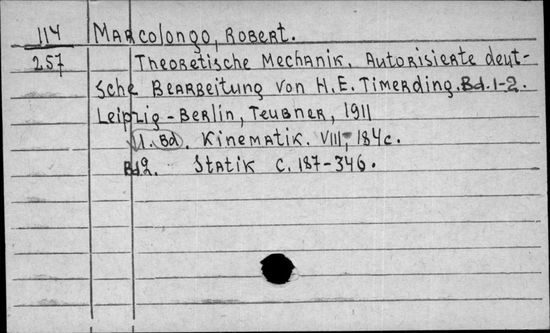 114 Marcolongo, Robert.
257 Theoretische Mechanik. Autorisierte deut-
sche Bearbeitung von H.E. Timerding. Bd. 1-2.
Leipzig - Berlin, Teubner, 1911
1. Bd. Kinematik. VIII, 184 c.
Bd 2. Statik c. 187-346.